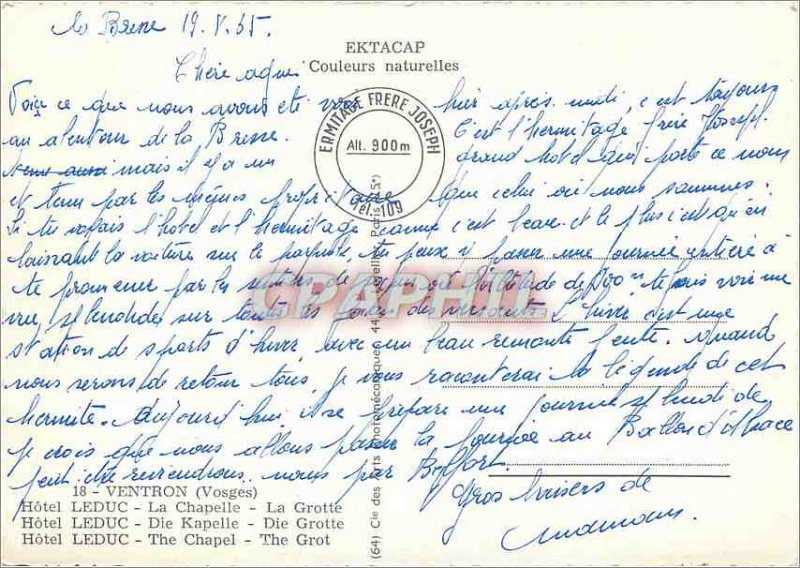 La Bresse 19.V.65.
EKTACAP
Couleurs naturelles
Chère
Voici ce que nous avons été voir hier après midi, c'est toujours
au alentour de la Bresse. C'est l'hermitage frère Joseph.
mais il y a un grand hotel qui porte ce nom
et tenu par les mêmes propriétaire que celui où nous sommes.
Si tu voyais l'hotel et l'hermitage comme c'est beau et le plus c'est qu'en
laissant la voiture sur le tu peux y passer une journée entière à
te promener par les sentiers de à l'altitude de 900m te vois une
vue splendide sur tous les l'hiver c'est une
station de sports d'hiver, avec un beau remonte pente. Quand
nous serons de retour tous, je vous raconterai la légende de cet
hermite. Aujourd'hui il se prépare une journée splendide
je crois que nous allons passer la journée au Ballon d'Alsace
peut être reviendrons nous par Belfort.
Gros baisers de
ERMITAGE FRERE JOSEPH
Alt. 900m
Tél. 109
GRAPHIL
18 - VENTRON (Vosges)
Hôtel LEDUC - La Chapelle - La Grotte
Hôtel LEDUC - Die Kapelle - Die Grotte
Hôtel LEDUC - The Chapel - The Grot
(64) Cie des Arts Photomécaniques, 44